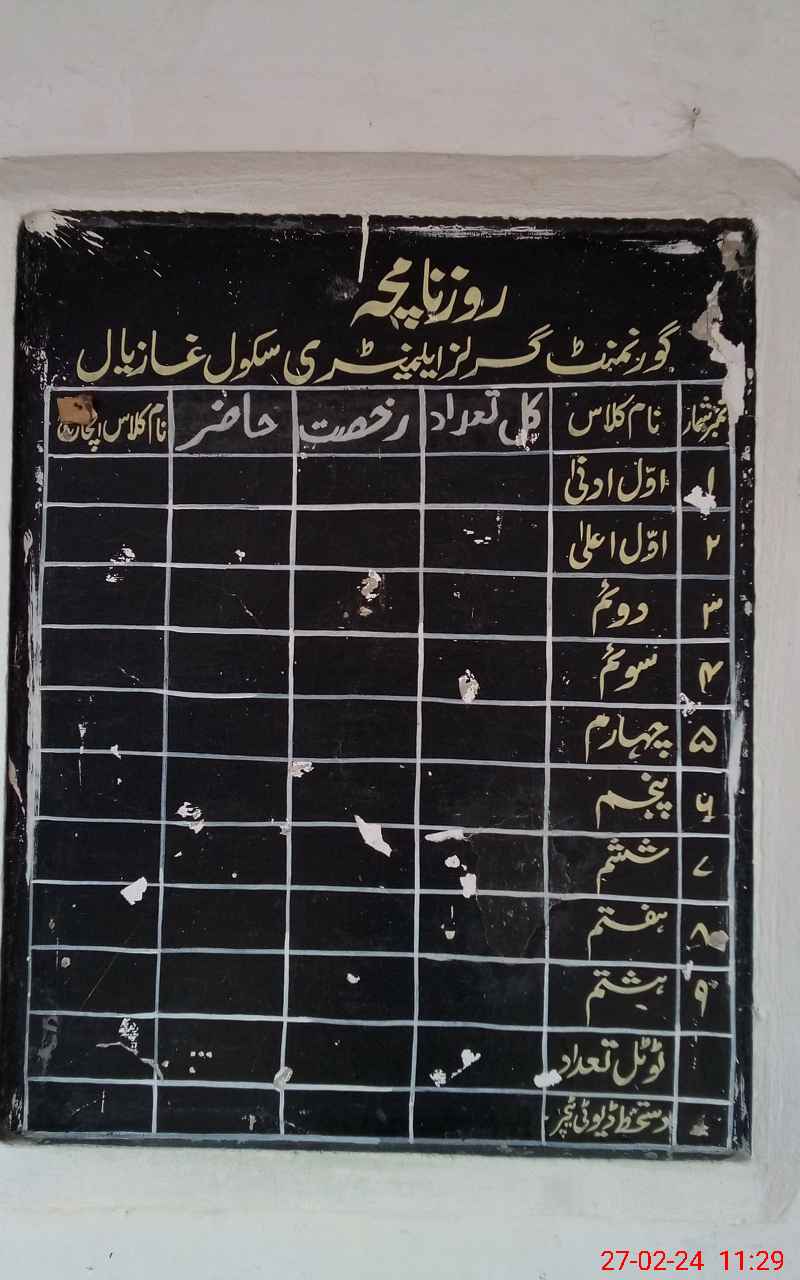 روزنامچہ
گورنمنٹ گرلز ایلیمنٹری سکول غازیال
نمبر شمار نام کلاس کل تعداد رخصت حاضر نام کلاس انچارج
۱ اوّل ادنیٰ
۲ اوّل اعلیٰ
۳ دوئم
۴ سوئم
۵ چہارم
۶ پنجم
۷ ششم
۸ ہفتم
۹ ہشتم
ٹوٹل تعداد
دستخط ڈیوٹی ٹیچر
27-02-24 11:29